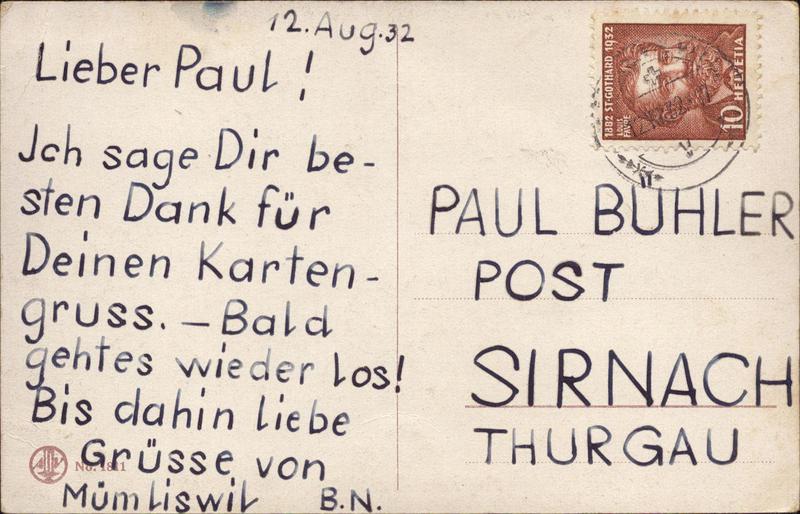 12. Aug. 32
Lieber Paul!
Ich sage Dir be-
sten Dank für
Deinen Karten-
gruss. – Bald
gehtes wieder los!
Bis dahin liebe
Grüsse von
Mümliswil B.N.
No. 1811
1882 ST-GOTHARD 1932
LOUIS
FAVRE
10 HELVETIA
PAUL BÜHLER
POST
SIRNACH
THURGAU